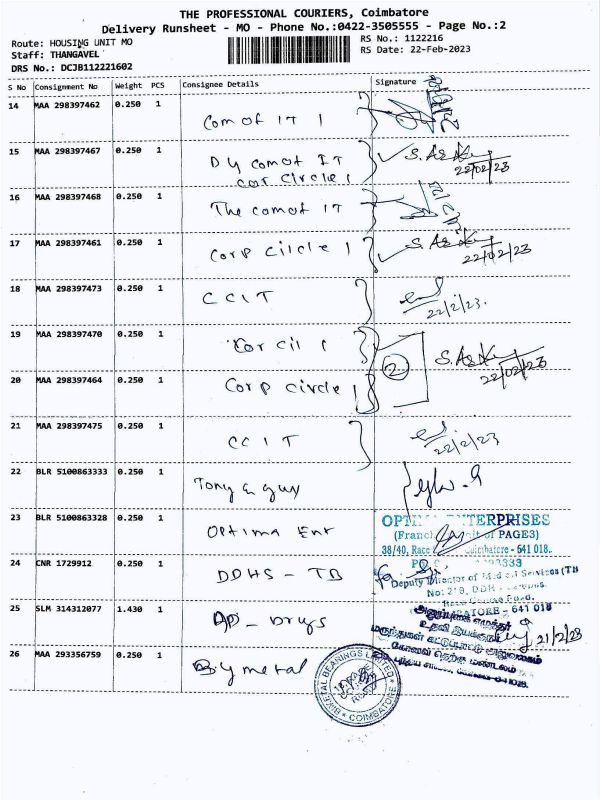 THE PROFESSIONAL COURIERS, Coimbatore
Delivery Runsheet - MO - Phone No.:0422-3505555 - Page No.:2
Route: HOUSING UNIT MO
RS No.: 1122216
Staff: THANGAVEL
RS Date: 22-Feb-2023
DRS No.: DCJB112221602
S No Consignment No Weight PCS Consignee Details Signature
14 MAA 298397462 0.250 1 Com of IT 1
15 MAA 298397467 0.250 1 Dy comof IT
cor circle 1
22/02/23
16 MAA 298397468 0.250 1 The comof IT
17 MAA 298397461 0.250 1 Corp circle 1
22/02/23
18 MAA 298397473 0.250 1 CCIT
22/2/23.
19 MAA 298397470 0.250 1 Cor cil 1
2
22/02/23
20 MAA 298397464 0.250 1 Corp circle 1
21 MAA 298397475 0.250 1 CCIT
22/2/23
22 BLR 5100863333 0.250 1 Tony & guy
23 BLR 5100863328 0.250 1 Optima Ent
ENTERPRISES
PAGE3)
38/40, Race Coimbatore - 641 018.
24 CNR 1729912 0.250 1 DDHS - TB
Deputy Director of Medical Services (TB
No: 219, DDH
Race Course Road,
COIMBATORE - 641 018
25 SLM 314312077 1.430 1 AD - Drugs
21/2/23
உதவி இயக்குநர்
மருந்துகள் கட்டுப்பாட்டு அலுவலகம்
கோவை தெற்கு மண்டலம்
26 MAA 293356759 0.250 1 Bimetal
BIMETAL BEARINGS LIMITED
COIMBATORE